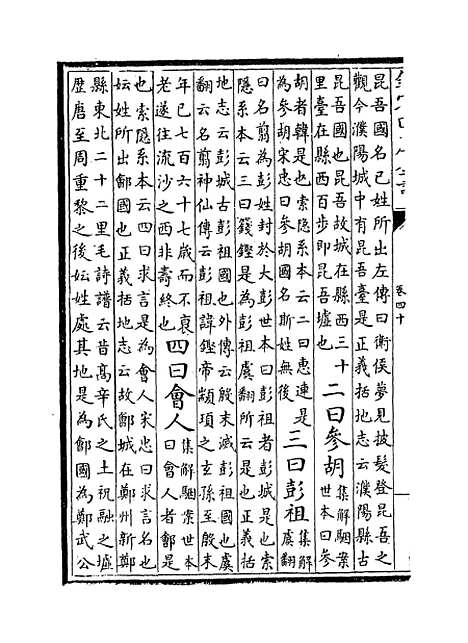 昆吾國名己姓所出左傳曰衛侯夢見披髮登昆吾之
觀今濮陽城中有昆吾臺是正義括地志云濮陽縣古
昆吾國也昆吾故城在縣西三十
里臺在縣西百步即昆吾墟也
二曰參胡
集解駰案
世本曰參
胡者韓是也索隱系本云二曰惠連是
為參胡宋忠曰參胡國名斯姓無後
三曰彭祖
集解
虞翻
曰名翦為彭姓封於大彭世本曰彭祖者彭城是也索
隱系本云三曰籛鏗是為彭祖虞翻所云是也正義括
地志云彭城古彭祖國也外傳云殷末滅彭祖國也虞
翻云名翦神仙傳云彭祖諱鏗帝顓頊之玄孫至殷末
年已七百六十七歲而不衰
老遂往流沙之西非壽終也
四曰會人
集解駰案世本
曰會人者鄶是
也索隱系本云四曰求言是為會人宋忠曰求言名也
妘姓所出鄶國也正義括地志云故鄶城在鄭州新鄭
縣東北二十二里毛詩譜云昔高辛氏之土祝融之墟
歷唐至周重黎之後妘姓處其地是為鄶國為鄭武公
卷四十